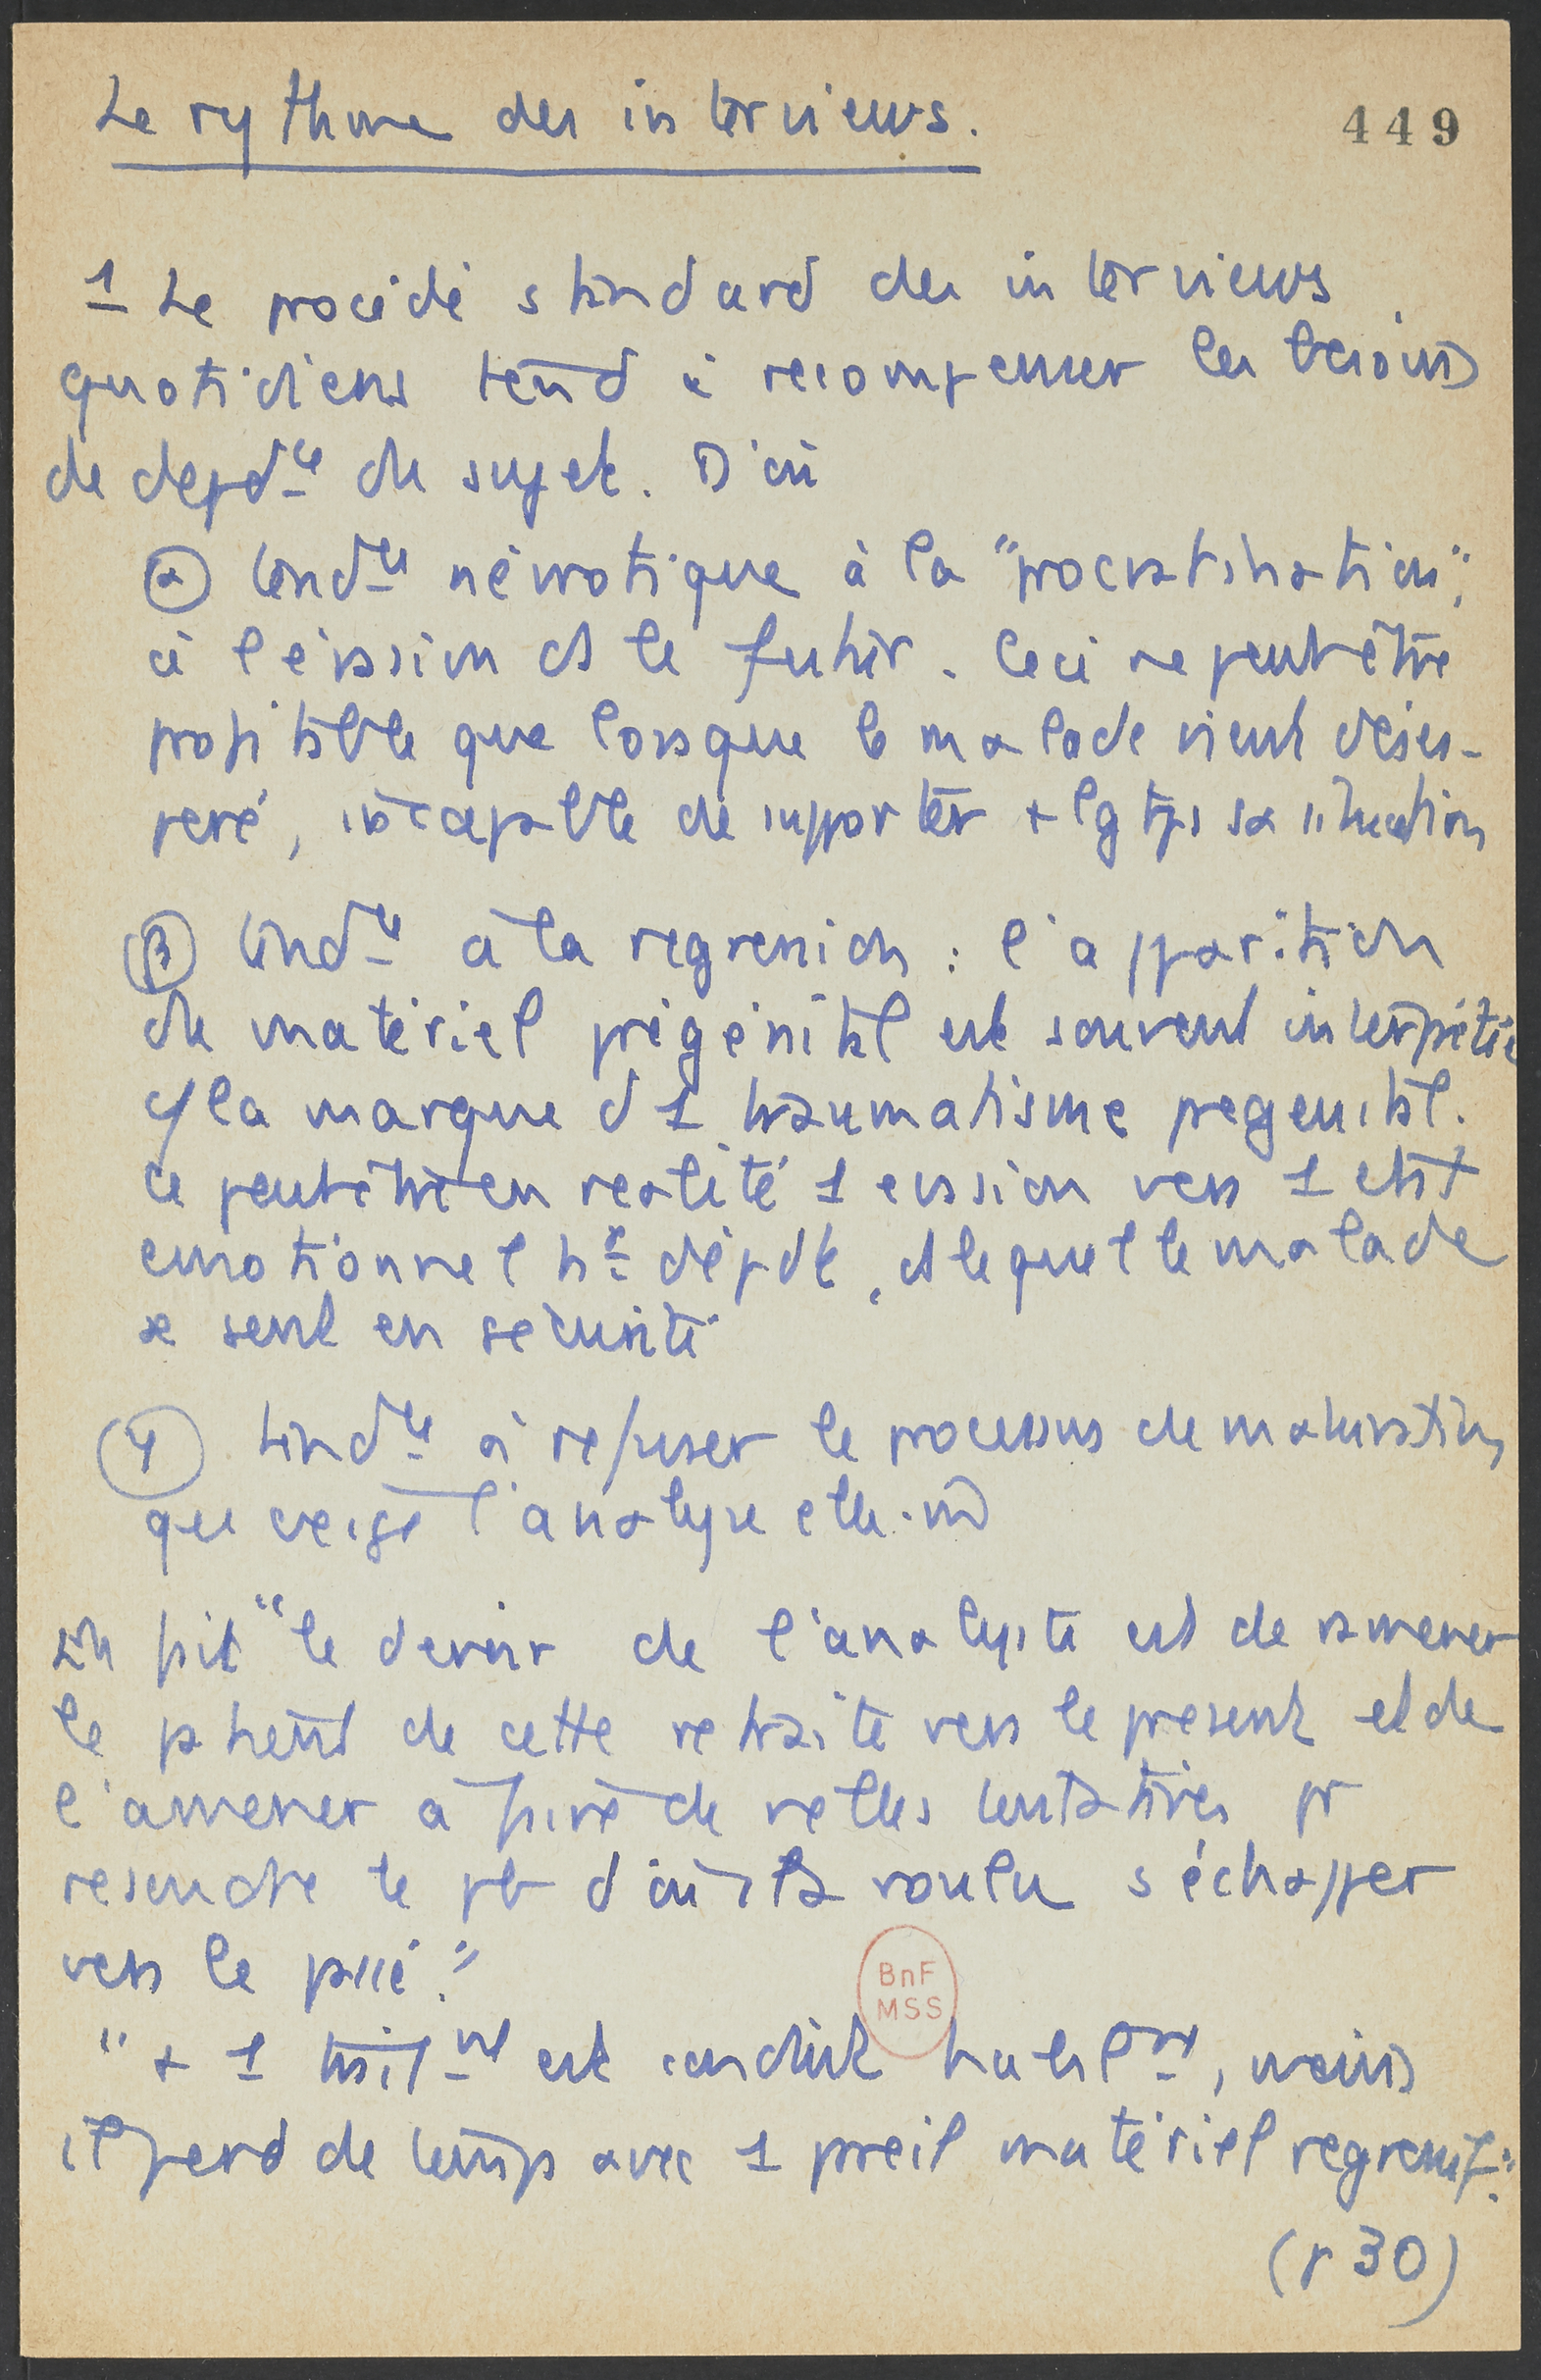 Le rythme des interviews.
449
1 Le procédé standard des interviews
quotidiens tend à recompenser les besoins
de depdce du sujet. D'où
α tendce névrotique à la "procrastination",
à l'évasion ds le futur. Ceci ne peut être
profitable que lorsque le malade vient déses-
peré, incapable de supporter + lg tps sa situation
β tendce à la regression : l'apparition
du matériel prégénital est souvent interprétée
c/ la marque d'1 traumatisme pregenital.
Ce peut être en realité 1 evasion vers 1 etat
emotionnel tr dépdt, ds lequel le malade
se sent en sécurité
γ tendce à refuser le processus de maturation
que exige l'analyse elle-m̂
En fait "le devoir de l'analyste est de ramener
le patient de cette retraite vers le present et de
l'amener à faire de nelles tentatives pr
resoudre le pb d'où il a voulu s'échapper
vers le passé."
"+ 1 trait.nt est conduit, moins
il perd de temps avec 1 pareil matériel regressif."
(p 30)
BnF
MSS